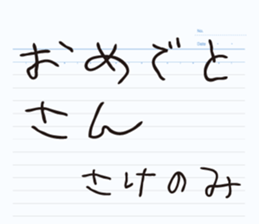 No.
Date
おめでと
さん
さけのみ